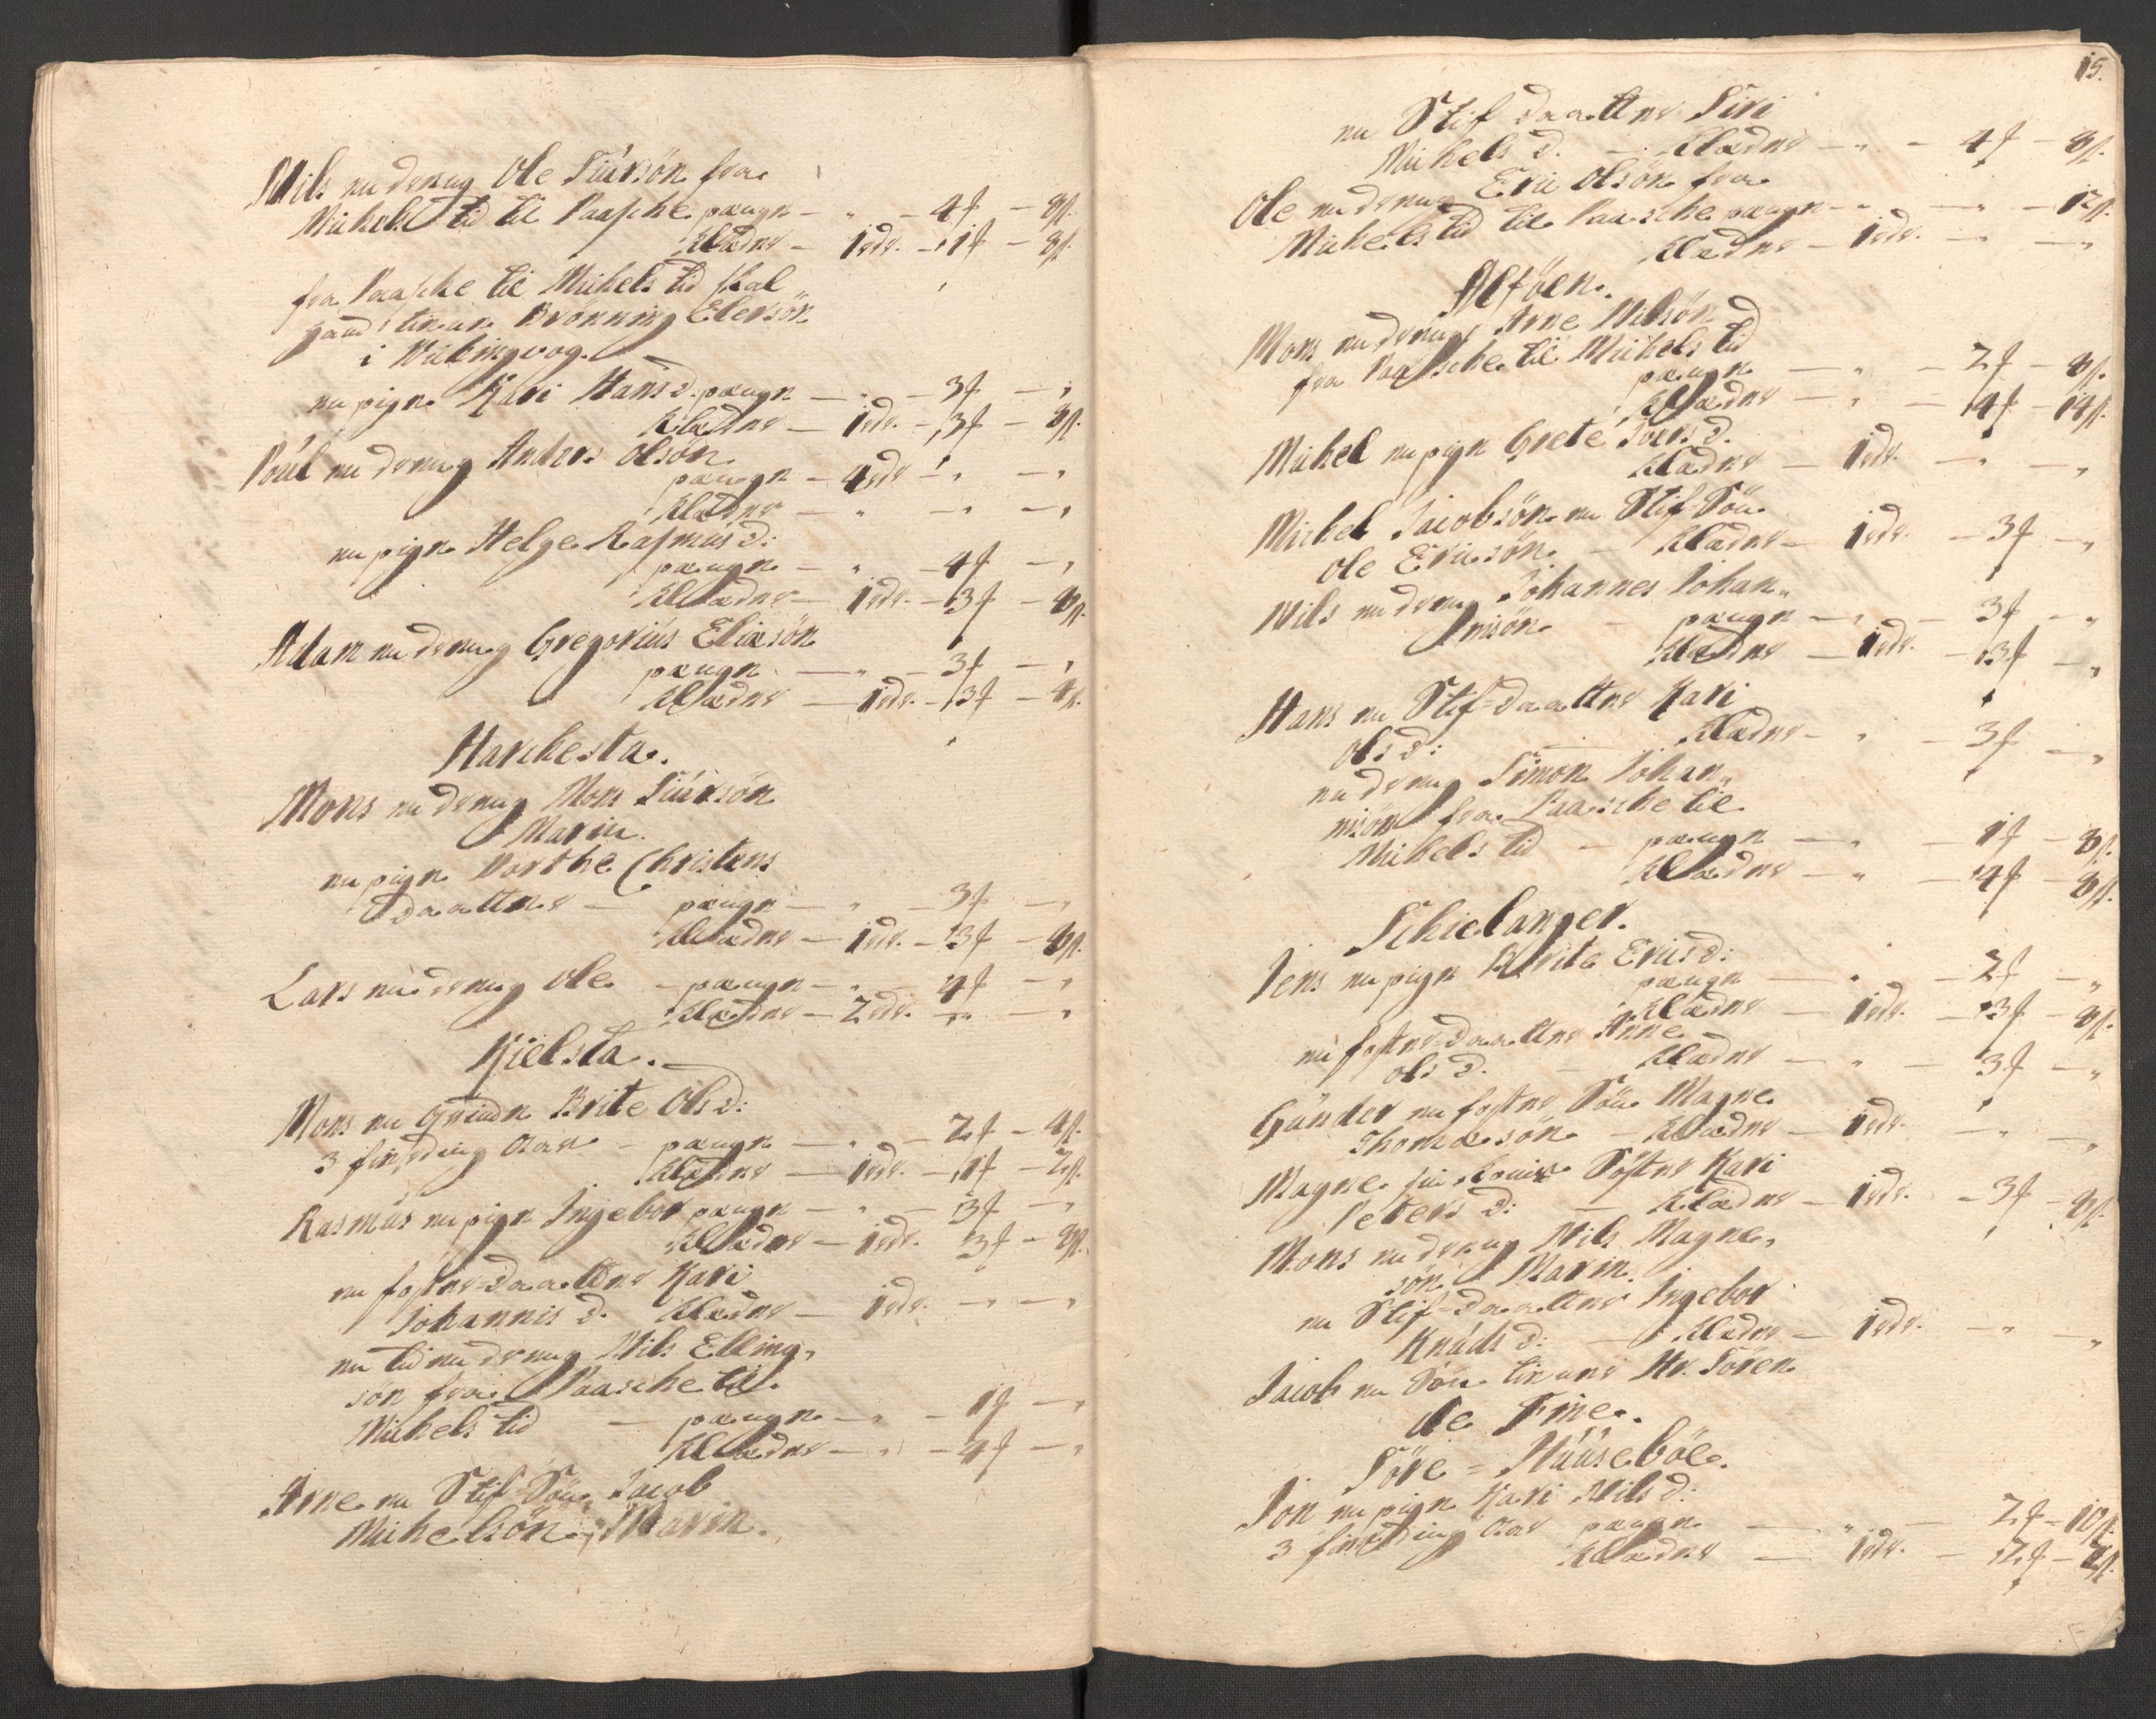 Nils nu dreng Ole Siursön fra
Michels tid til Paasche pænge - " - 4 f - 8 ſ.
Klæder - 1 rdr. - 1 f - 8 ſ
fra Paasche til Michels tid skal
hand tienne Brönning Elersön
i Wikingvog.
nu pige Kari Hans d. pænge - " - 3 f - "
Klæder - 1 rdr. - 3 f - 8 ſ.
Poul nu dreng Anders Olsön
pænge - 4 rdr - " - "
Klæder - " - " - "
nu pige Helge Rasmus d:
pænge - " - 4 f - "
Klæder - 1 rdr. - 3 f - 8 ſ.
Adam nu dreng Gregorius Eliæsön
pænge - " - 3 f - "
Klæder - 1 rdr. - 3 f - 4 ſ.
Harchesta.
Mons nu dreng Mons Siursön
Marin.
nu pige Dorthe Christens
daatter - pænge - " - 3 f - "
Klæder - 1 rdr. - 3 f - 8 ſ.
Lars nu dreng Ole - pænge - " - 4 f - "
Klæder - 2 rdr. - " - "
Kielsta.
Mons nu Brite Ols d:
3 fierding Aar - pænge - " - 2 f - 4 ſ.
Klæder - 1 rdr. - 1 f - 2 ſ.
Rasmus nu pige Ingebor pænge - " - 3 f - "
Klæder - 1 rdr. 3 f - 8 ſ.
nu foster-daatter Kari
Johannis d. Klæder - 1 rdr. - " - "
nu liden dreng Nils Elling,
sön fra Paasche til
Michels tid - pænge - " - 1 f - "
Klæder - " - 4 f - "
Arne nu Stif-Sön Jacob
Michelsön, Marin.
15.
nu Stif daatter Siri
Michels d. - Klæder - " - 4 f - 8 ſ.
Ole nu dreng Eric Olsön fra
Michels tid til Paasche pænge - " - " - 12 ſ.
Klæder - 1 rdr. - " - "
Alföen.
Mons nu dreng Arne Nilsön
fra Paasche til Michels tid
pænge - " - 2 f - 8 ſ.
Klæder - " - 4 f - 14 ſ.
Michel nu pige Grete Ivers d.
Klæder - 1 rdr. - " - "
Michel Jacobsön nu Stif-Sön
Ole Ericsön - Klæder - 1 rdr. - 3 f - "
Nils nu dreng Johannes Johan,
nisön - pænge - " - 3 f - "
Klæder - 1 rdr. - 3 f - "
Hans nu Stif-daatter Kari
Ols d: - Klæder - " - 3 f - "
nu dreng Simon Johan,
nisön fra Paasche til
Michels tid - pænge - " - 1 f - 8 ſ.
Klæder - " - 4 f - 8 ſ.
Schielanger.
Jens nu pige Brite Erics d:
pænge - " - 2 f - "
Klæder - 1 rdr. - 3 f - 8 ſ.
nu foster-daatter Anne
Ols d. - Klæder - " - 3 f - "
Gunder nu foster Sön Magne
Thomæsön - Klæder - 1 rdr. - " - "
Magne sin Söster Kari
Peters d: - Klæder - 1 rdr. - 3 f - 8 ſ.
Mons nu dreng Nils Magne,
sön - Marin.
nu Stif-daatter Ingebor
Knuds d: - Klæder - 1 rdr. - " - "
Jacob nu Sön tiener Hr. Sören
de Fine.
Söre = Huuseböe.
Jon nu pige Kari Nils d:
3 fierding Aar pænge - " - 2 f - 10 ſ.
Klæder - 1 rdr. - 2 f - 2 ſ.